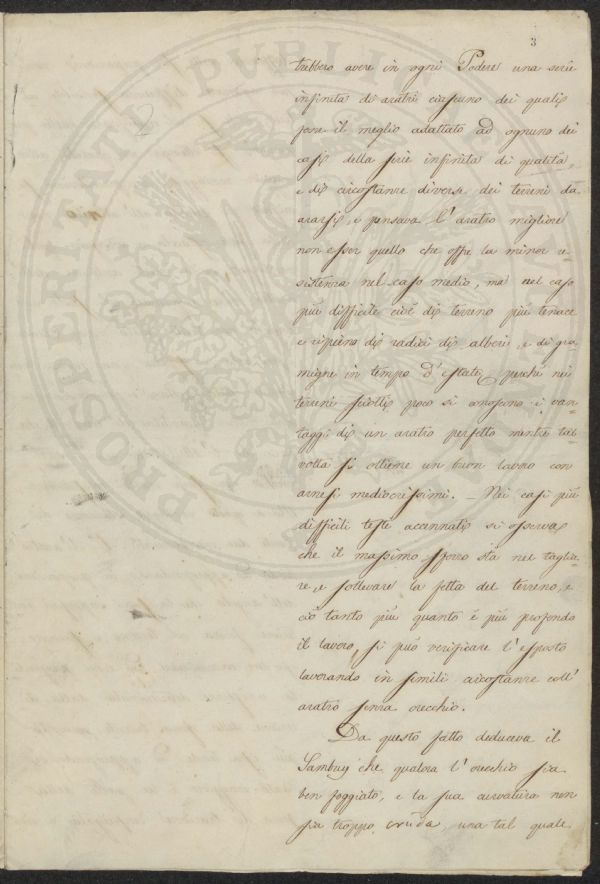 3
trebbero avere in ogni Podere una serie
infinita di aratri ciascuno dei quali
fosse il meglio adattato ad ognuno dei
casi della serie infinita di qualità,
e di circostanze diverse dei terreni da
ararsi, e pensava l'aratro migliore
non esser quello che offre la minor re-
sistenza nel caso medio, ma nel caso
più difficile cioè di terreno più tenace
e ripieno di radici di alberi, e di gra
migne in tempo d'estate, perchè nei
terreni sciolti poco si conoscono i van-
taggi di un aratro perfetto mentre tal
volta si ottiene un buon lavoro con
arnesi mediocrissimi. - Nei casi più
difficili testè accennati si osserva
che il massimo sforzo sta nel taglia-
re, e sollevare la fetta del terreno, e
ciò tanto più quanto è più profondo
il lavoro, si può verificare l'esposto
lavorando in simili circostanze coll'
aratro senza orecchio.
Da questo fatto deduceva il
Sambuy che qualora l'orecchio sia
ben foggiato, e la sua curvatura non
sia troppo cruda, una tal quale
PROSPERITATI PVBLICAE